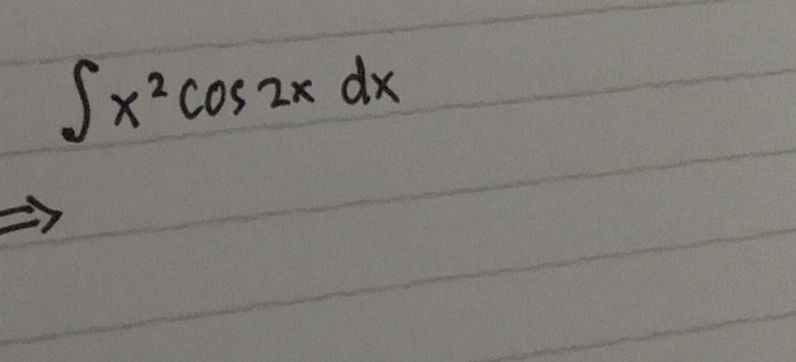 ∫ x² cos 2x dx
⇒